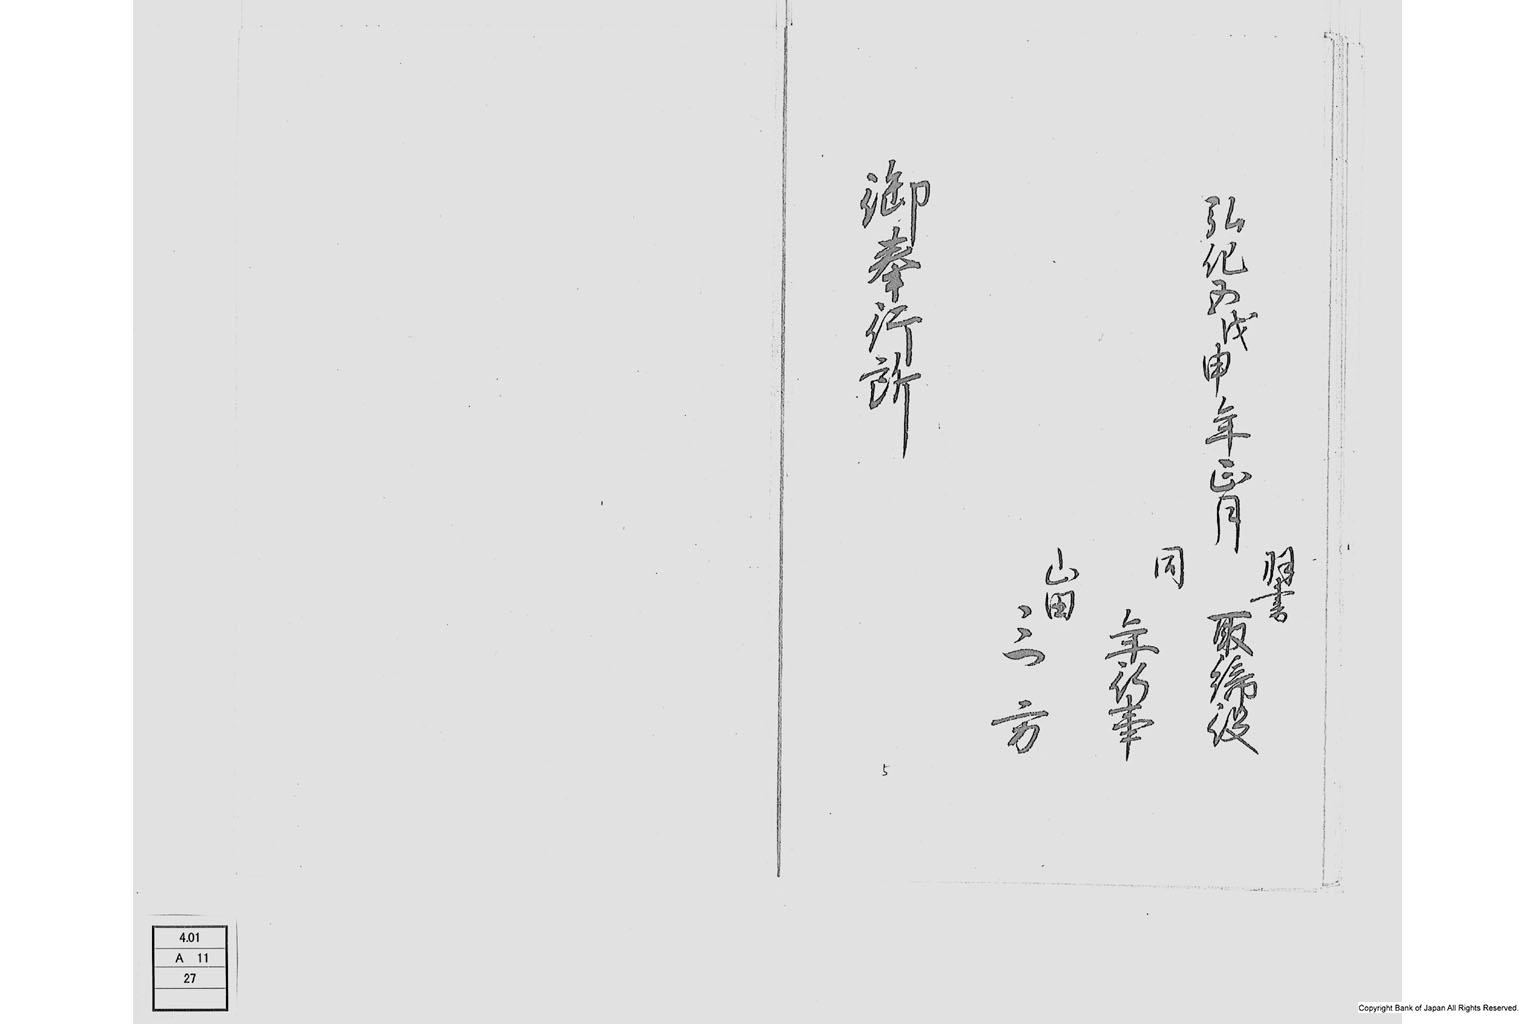 弘化五戊申年正月
羽書
取締役
同
年行事
山田
三方
御奉行所
5
4.01
A 11
27
Copyright Bank of Japan All Rights Reserved.